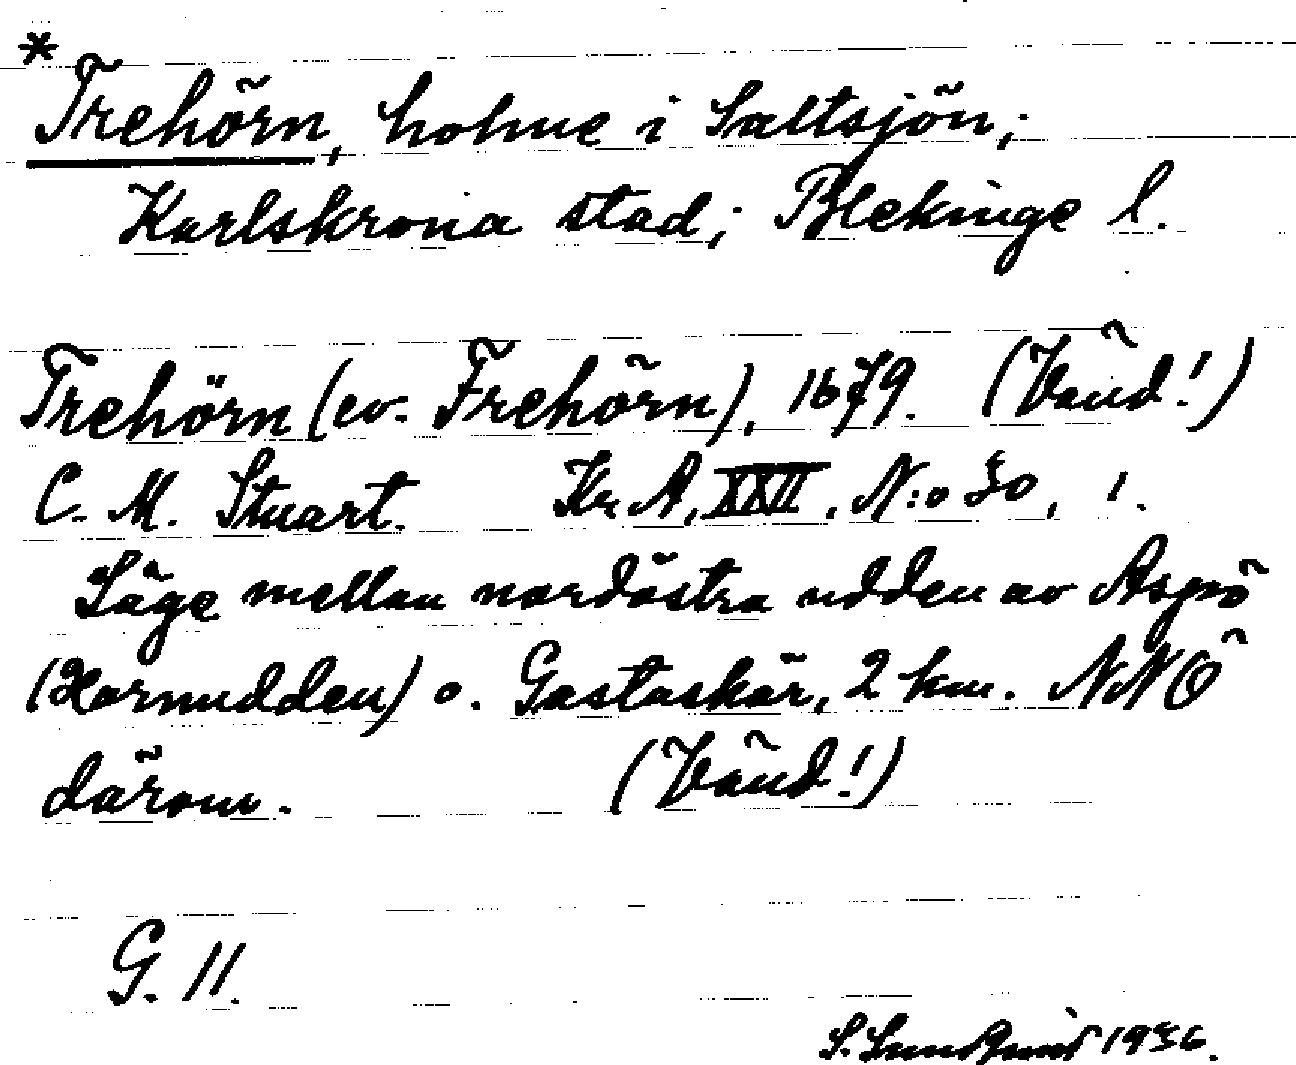 *Trehörn, holme i Saltsjön;
Karlskrona stad; Blekinge l.
Trehörn (ev. Frehörn), 1679. (Vänd!)
C. M. Stuart. Kr A, XXII, N:o 30, 1.
Läge mellan nordöstra udden av Aspö
(Hornudden) o. Gastaskär, 2 km. NNÖ
därom. (Vänd!)
G. 11.
S. Lundquist 1936.